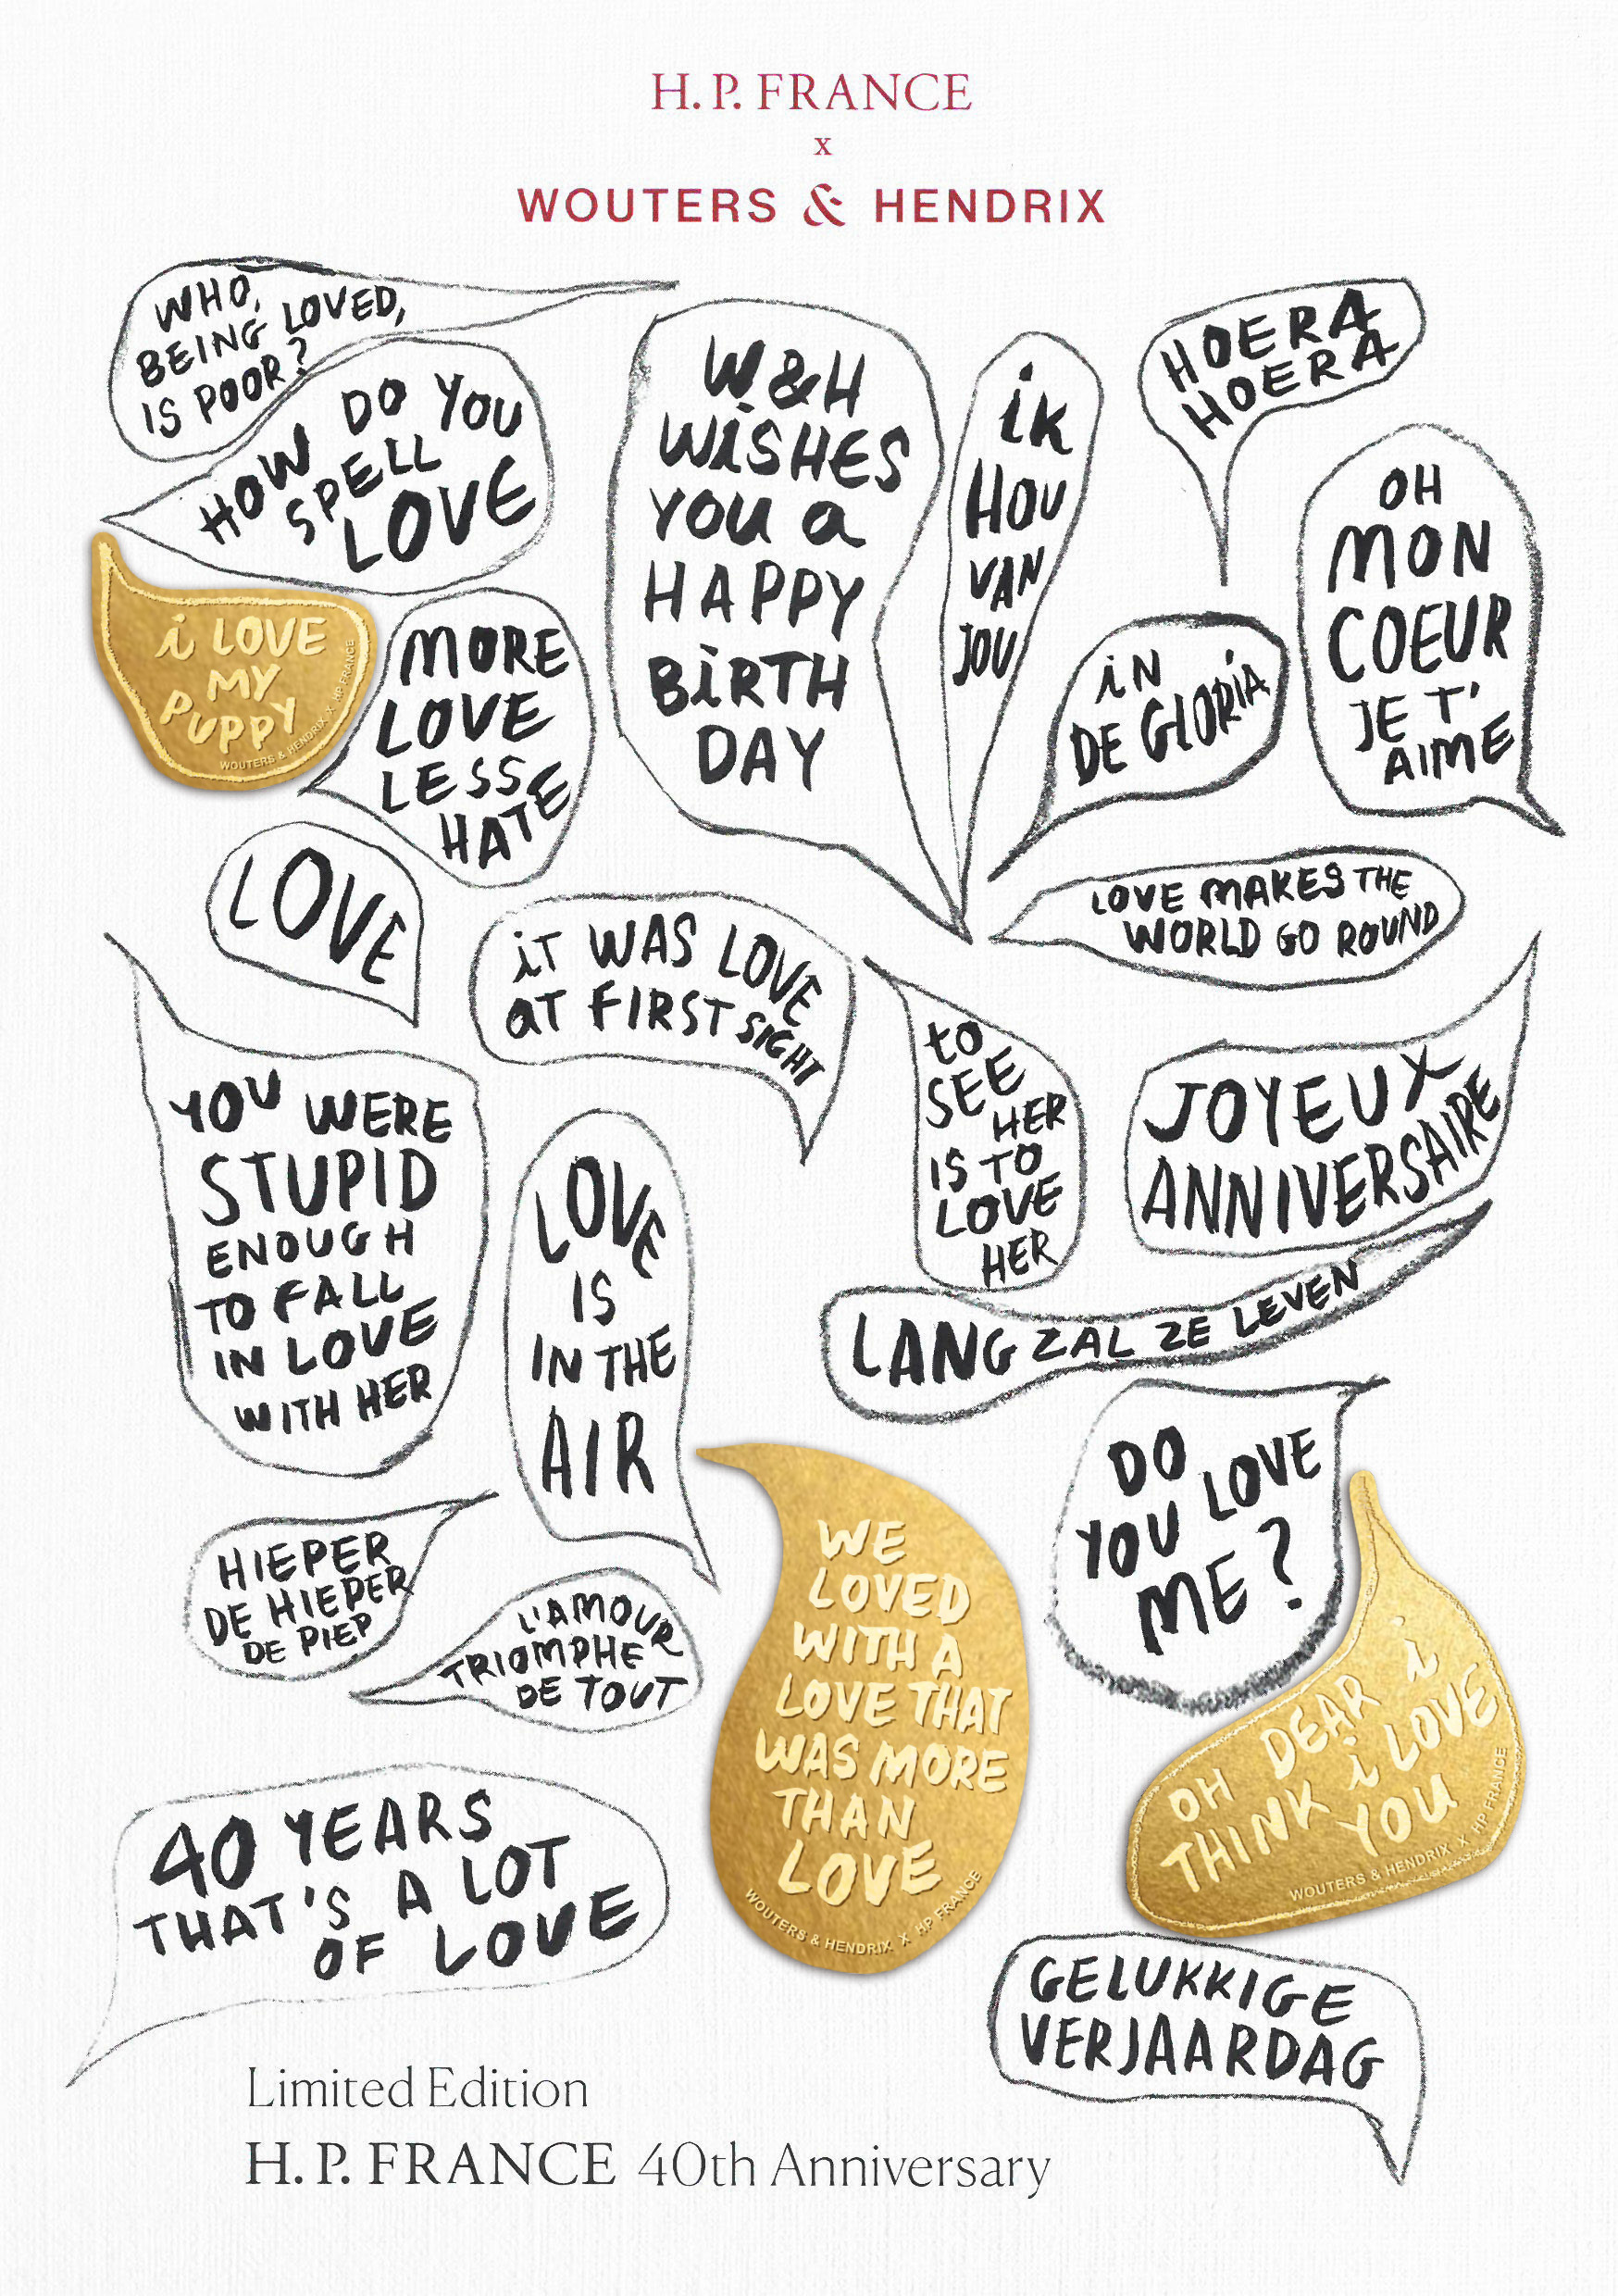 H.P. FRANCE
x
WOUTERS & HENDRIX
WHO,
BEING LOVED,
IS POOR?
HOW DO YOU
SPELL
LOVE
W&H
WiSHES
YOU a
HAPPY
BiRTH
DAY
iK
HOU
VAN
JOU
HOERA
HOERA
OH
MON
COEUR
JE T'
AIME
i LOVE
MY
PUPPY
WOUTERS & HENDRIX X HP FRANCE
MORE
LOVE
LESS
HATE
iN
DE GLORiA
LOVE
iT WAS LOVE
aT FIRST SIGHT
LOVE MAKES THE
WORLD GO ROUND
YOU WERE
STUPID
ENOUGH
TO FALL
IN LOVE
WITH HER
LOVE
IS
IN THE
AIR
to
SEE
HER
IS TO
LOVE
HER
JOYEUX
ANNIVERSAIRE
LANG ZAL ZE LEVEN
DO
YOU LOVE
ME?
HIEPER
DE HIEPER
DE PIEP
L'AMOUR
TRIOMPHE
DE TOUT
WE
LOVED
WITH A
LOVE THAT
WAS MORE
THAN
LOVE
WOUTERS & HENDRIX X HP FRANCE
OH DEAR i
THINK i LOVE
YOU
WOUTERS & HENDRIX X HP FRANCE
40 YEARS
THAT'S A LOT
OF LOVE
GELUKKIGE
VERJAARDAG
Limited Edition
H.P. FRANCE 40th Anniversary